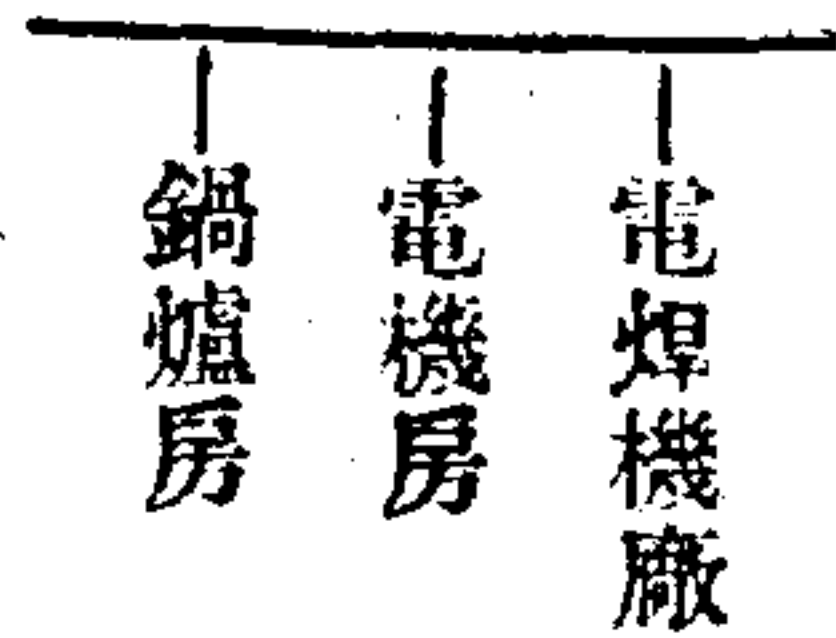 電焊機廠
電機房
鍋爐房